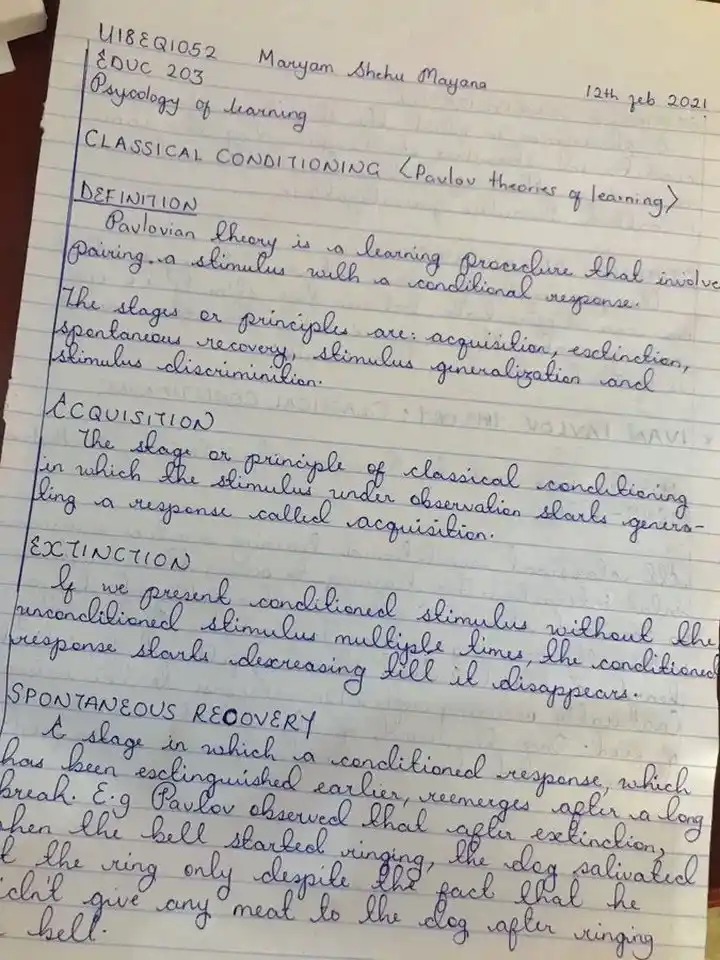 U18EQ1052 Maryam Shehu Mayana 12th feb 2021
EDUC 203
Psycology of learning
CLASSICAL CONDITIONING (Pavlov theories of learning)
DEFINITION
Pavlovian theory is a learning procedure that involve
pairing a stimulus with a conditional response.
The stages or principles are: acquisition, exctinction,
spontaneous recovery, stimulus generalization and
stimulus discriminition.
ACQUISITION
The stage or principle of classical conditioning
in which the stimulus under observation starts genera-
ting a response called acquisition.
EXTINCTION
If we present conditioned stimulus without the
unconditioned stimulus multiple times, the conditioned
response starts decreasing till it disappears.
SPONTANEOUS RECOVERY
A stage in which a conditioned response, which
has been exctinguished earlier, reemerges after a long
break. E.g Pavlov observed that after extinction,
when the bell started ringing, the dog salivated
t the ring only despite the fact that he
idn't give any meat to the dog after ringing
bell.